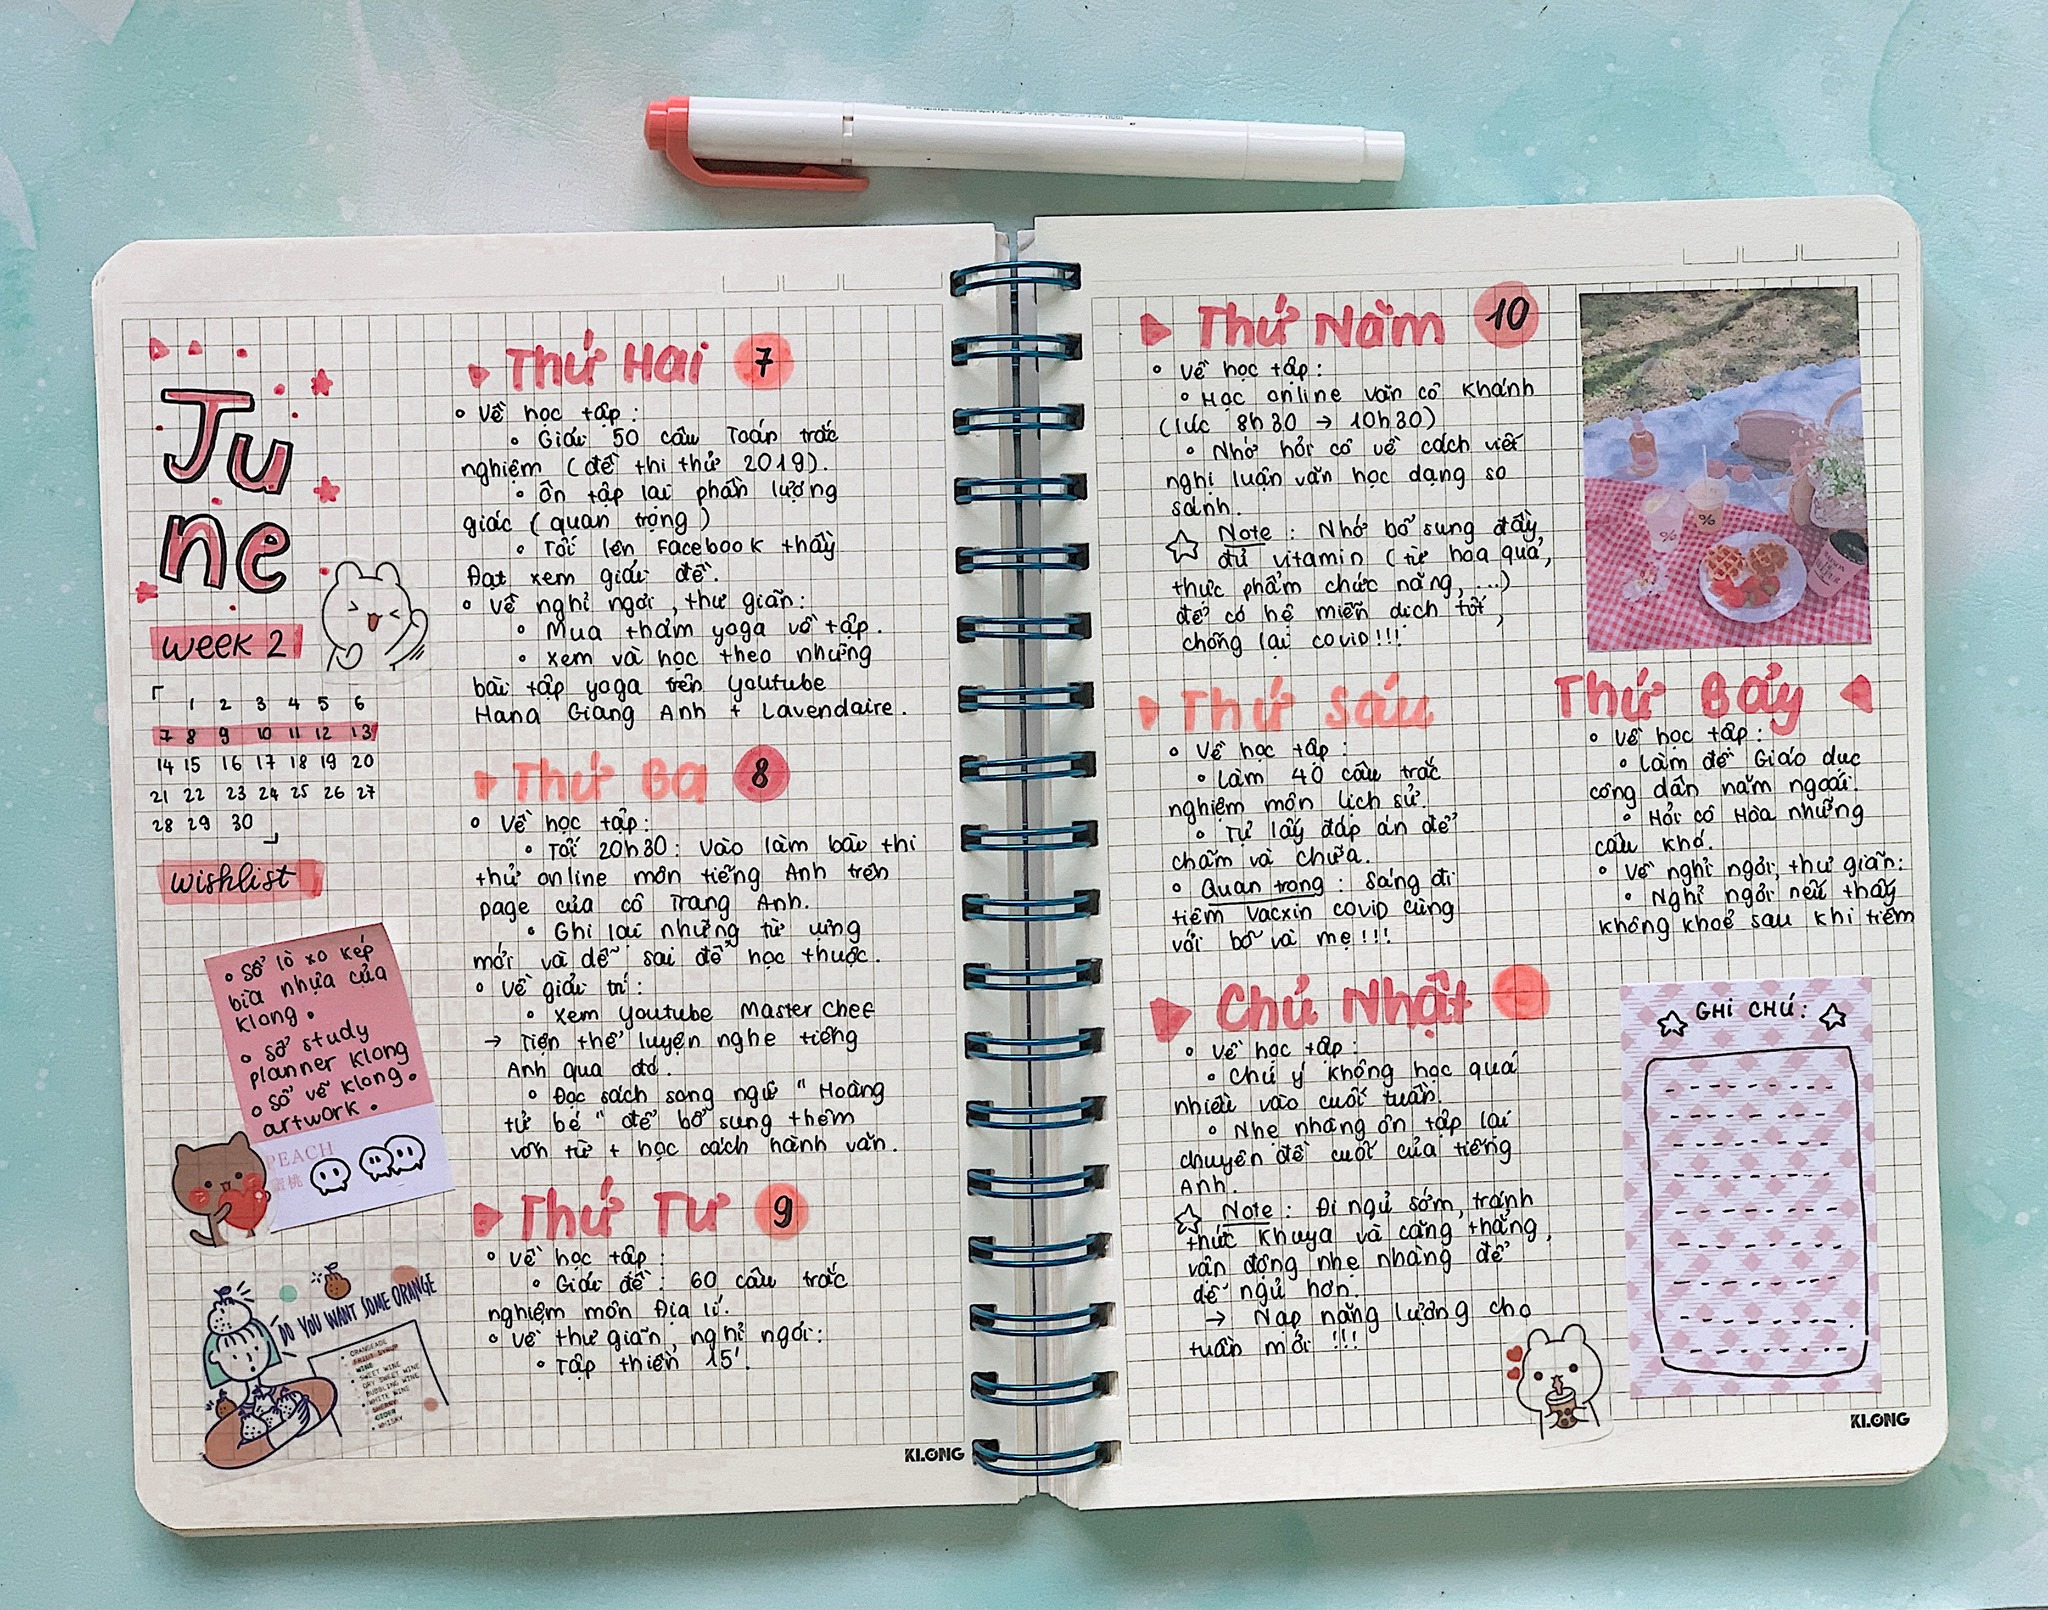 June
week 2
1 2 3 4 5 6
7 8 9 10 11 12 13
14 15 16 17 18 19 20
21 22 23 24 25 26 27
28 29 30
wishlist
• Sổ lò xo kép
bìa nhựa của
Klong.
• Sổ study
planner Klong
• Sổ vẽ Klong.
artwork.
PEACH
蜜桃
DO YOU WANT SOME ORANGE
ORANGEADE
FRUIT SYRUP
WINE
SWEET WINE
DRY SWEET WINE
BUBBLING WINE
WHITE WINE
SHERRY
CIDER
WHISKY
Thứ Hai 7
• Về học tập:
• Giải 50 câu Toán trắc
nghiệm (đề thi thử 2019).
• Ôn tập lại phần lượng
giác (quan trọng)
• Tối lên Facebook thầy
Đạt xem giải đề.
• Về nghỉ ngơi, thư giãn:
• Mua thảm yoga về tập.
• Xem và học theo những
bài tập yoga trên youtube
Hana Giang Anh + Lavendaire.
Thứ Ba 8
• Về học tập:
• Tối 20h30: Vào làm bào thi
thử online môn tiếng Anh trên
page của cô Trang Anh.
• Ghi lại những từ vựng
mới và dễ sai để học thuộc.
• Về giải trí:
• Xem Youtube Master Chef
→ Tiện thể luyện nghe tiếng
Anh qua đó.
• Đọc sách song ngữ "Hoàng
tử bé" để bổ sung thêm
vốn từ + học cách hành văn.
Thứ Tư 9
• Về học tập:
• Giải đề: 60 câu trắc
nghiệm môn Địa lí.
• Về thư giãn, nghỉ ngơi:
• Tập thiền 15'.
KLONG
Thứ Năm 10
• Về học tập:
• Học online văn cô Khánh
(lúc 8h30 → 10h30)
• Nhớ hỏi cô về cách viết
nghị luận văn học dạng so
sánh.
Note: Nhớ bổ sung đầy
đủ vitamin (từ hoa quả,
thực phẩm chức năng,...)
để có hệ miễn dịch tốt,
chống lại covid!!!
Thứ Sáu
• Về học tập:
• Làm 40 câu trắc
nghiệm môn lịch sử.
• Tự lấy đáp án để
chấm và chữa.
• Quan trọng: Sáng đi
tiêm vacxin covid cùng
với bố và mẹ!!!
Thứ Bảy
• Về học tập:
• Làm đề Giáo dục
công dân năm ngoái.
• Hỏi cô Hòa những
câu khó.
• Về nghỉ ngơi, thư giãn:
• Nghỉ ngơi nếu thấy
không khoẻ sau khi tiêm
Chủ Nhật
• Về học tập:
• Chú ý không học quá
nhiều vào cuối tuần.
• Nhẹ nhàng ôn tập lại
chuyên đề cuối của tiếng
Anh.
Note: Đi ngủ sớm, tránh
thức khuya và căng thẳng,
vận động nhẹ nhàng để
dễ ngủ hơn.
→ Nạp năng lượng cho
tuần mới!!!
GHI CHÚ:
KLONG